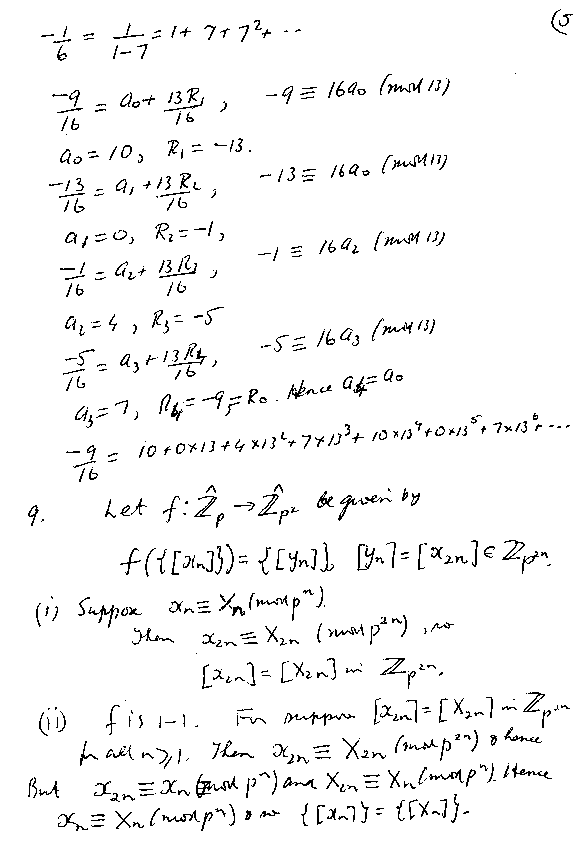 (5
-1/6 = 1/(1-7) = 1 + 7 + 7² + ...
-9/16 = a₀ + 13R₁/16 , -9 ≡ 16a₀ (mod 13)
a₀ = 10, R₁ = -13.
-13/16 = a₁ + 13R₂/16 , -13 ≡ 16a₀ (mod 13)
a₁ = 0, R₂ = -1,
-1/16 = a₂ + 13R₃/16 , -1 ≡ 16a₂ (mod 13)
a₂ = 4, R₃ = -5
-5/16 = a₃ + 13R₄/16 , -5 ≡ 16a₃ (mod 13)
a₃ = 7, R₄ = -9 = R₀. Hence a₄ = a₀
-9/16 = 10 + 0×13 + 4×13² + 7×13³ + 10×13⁴ + 0×13⁵ + 7×13⁶ + ...
9. Let f: Ẑₚ → Ẑₚ² be given by
f({[xₙ]}) = {[yₙ]}, [yₙ] = [x₂ₙ] ∈ Zₚ²ⁿ.
(i) Suppose xₙ ≡ Xₙ (mod pⁿ).
Then x₂ₙ ≡ X₂ₙ (mod p²ⁿ), so
[x₂ₙ] = [X₂ₙ] in Zₚ²ⁿ.
(ii) f is 1-1. For suppose [x₂ₙ] = [X₂ₙ] in Zₚ²ⁿ
for all n ≥ 1. Then x₂ₙ ≡ X₂ₙ (mod p²ⁿ) & hence
But x₂ₙ ≡ xₙ (mod pⁿ) and X₂ₙ ≡ Xₙ (mod pⁿ). Hence
xₙ ≡ Xₙ (mod pⁿ) & so {[xₙ]} = {[Xₙ]}.